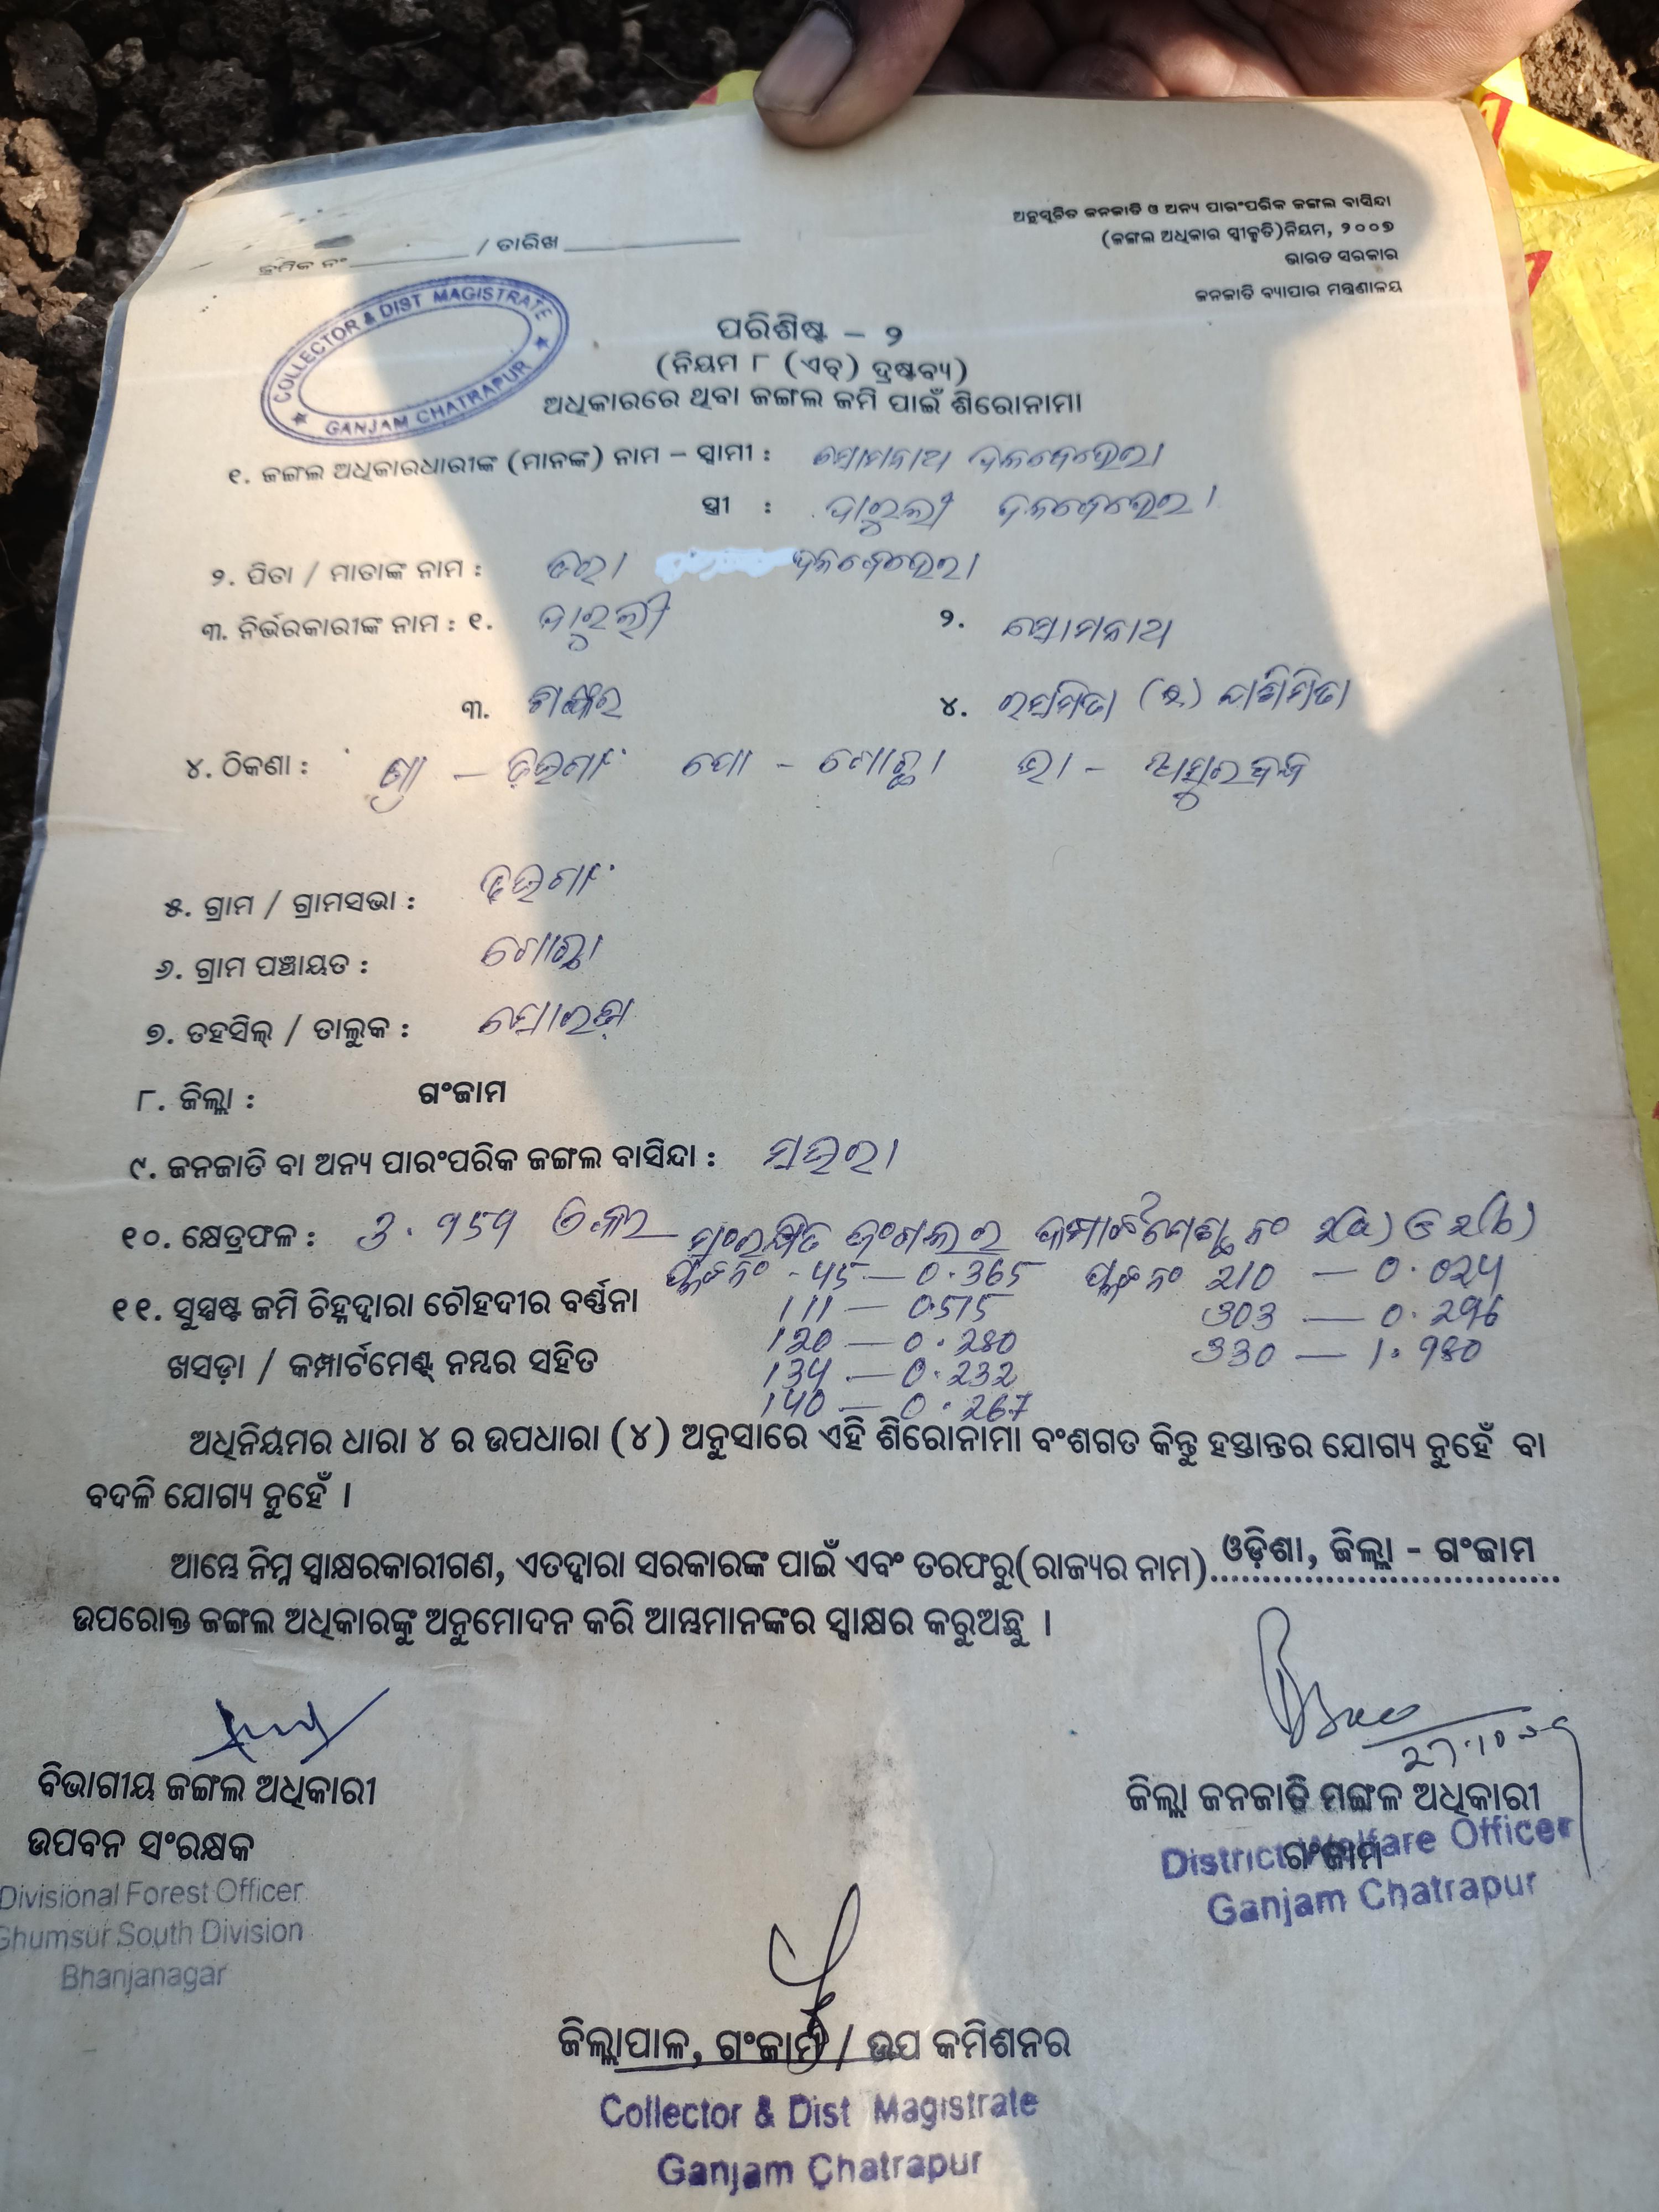 ଅନୁସୂଚିତ ଜନଜାତି ଓ ଅନ୍ୟ ପାରଂପରିକ ଜଙ୍ଗଲ ବାସିନ୍ଦା
(ଜଙ୍ଗଲ ଅଧିକାର ସ୍ୱୀକୃତି)ନିୟମ, ୨୦୦୭
ଭାରତ ସରକାର
ଜନଜାତି ବ୍ୟାପାର ମନ୍ତ୍ରଣାଳୟ
କ୍ରମିକ ନଂ / ତାରିଖ
COLLECTOR & DIST MAGISTRATE
GANJAM CHATRAPUR
ପରିଶିଷ୍ଟ – ୨
(ନିୟମ ୮ (ଏଚ୍) ଦ୍ରଷ୍ଟବ୍ୟ)
ଅଧିକାରରେ ଥିବା ଜଙ୍ଗଲ ଜମି ପାଇଁ ଶିରୋନାମା
୧. ଜଙ୍ଗଲ ଅଧିକାରଧାରୀଙ୍କ (ମାନଙ୍କ) ନାମ – ସ୍ୱାମୀ : ସୋମନାଥ ଦଳବେହେରା
ସ୍ତ୍ରୀ : ଦଳବେହେରା
୨. ପିତା / ମାତାଙ୍କ ନାମ : ଦଳବେହେରା
୩. ନିର୍ଭରକାରୀଙ୍କ ନାମ : ୧. ୨. ସୋମନାଥ
୩. ୪.
୪. ଠିକଣା : ଗ୍ରା – ପୋ – ଭା –
୫. ଗ୍ରାମ / ଗ୍ରାମସଭା :
୬. ଗ୍ରାମ ପଞ୍ଚାୟତ :
୭. ତହସିଲ୍ / ତାଲୁକ : ସୋରଡ଼ା
୮. ଜିଲ୍ଲା : ଗଂଜାମ
୯. ଜନଜାତି ବା ଅନ୍ୟ ପାରଂପରିକ ଜଙ୍ଗଲ ବାସିନ୍ଦା : ସଉରା
୧୦. କ୍ଷେତ୍ରଫଳ : ସଂରକ୍ଷିତ ଜଂଗଲର କମ୍ପାର୍ଟମେଣ୍ଟ ନଂ
ପ୍ଲଟ ନଂ - 45 — 0.365 ପ୍ଲଟ ନଂ 210 — 0.024
୧୧. ସୁସ୍ପଷ୍ଟ ଜମି ଚିହ୍ନଦ୍ୱାରା ଚୌହଦୀର ବର୍ଣ୍ଣନା 111 — 0.515 303 — 0.296
120 — 0.280 330 — 1.980
ଖସଡ଼ା / କମ୍ପାର୍ଟମେଣ୍ଟ୍ ନମ୍ବର ସହିତ 134 — 0.232
140 — 0.267
ଅଧିନିୟମର ଧାରା ୪ ର ଉପଧାରା (୪) ଅନୁସାରେ ଏହି ଶିରୋନାମା ବଂଶଗତ କିନ୍ତୁ ହସ୍ତାନ୍ତର ଯୋଗ୍ୟ ନୁହେଁ ବା
ବଦଳି ଯୋଗ୍ୟ ନୁହେଁ ।
ଆମ୍ଭେ ନିମ୍ନ ସ୍ୱାକ୍ଷରକାରୀଗଣ, ଏତଦ୍ୱାରା ସରକାରଙ୍କ ପାଇଁ ଏବଂ ତରଫରୁ(ରାଜ୍ୟର ନାମ) ଓଡ଼ିଶା, ଜିଲ୍ଲା - ଗଂଜାମ
ଉପରୋକ୍ତ ଜଙ୍ଗଲ ଅଧିକାରଙ୍କୁ ଅନୁମୋଦନ କରି ଆମ୍ଭମାନଙ୍କର ସ୍ୱାକ୍ଷର କରୁଅଛୁ ।
ବିଭାଗୀୟ ଜଙ୍ଗଲ ଅଧିକାରୀ
ଉପବନ ସଂରକ୍ଷକ
Divisional Forest Officer
Ghumsur South Division
Bhanjanagar
ଜିଲ୍ଲା ଜନଜାତି ମଙ୍ଗଳ ଅଧିକାରୀ
ଗଂଜାମ
District Welfare Officer
Ganjam Chatrapur
ଜିଲ୍ଲାପାଳ, ଗଂଜାମ / ଉପ କମିଶନର
Collector & Dist Magistrate
Ganjam Chatrapur